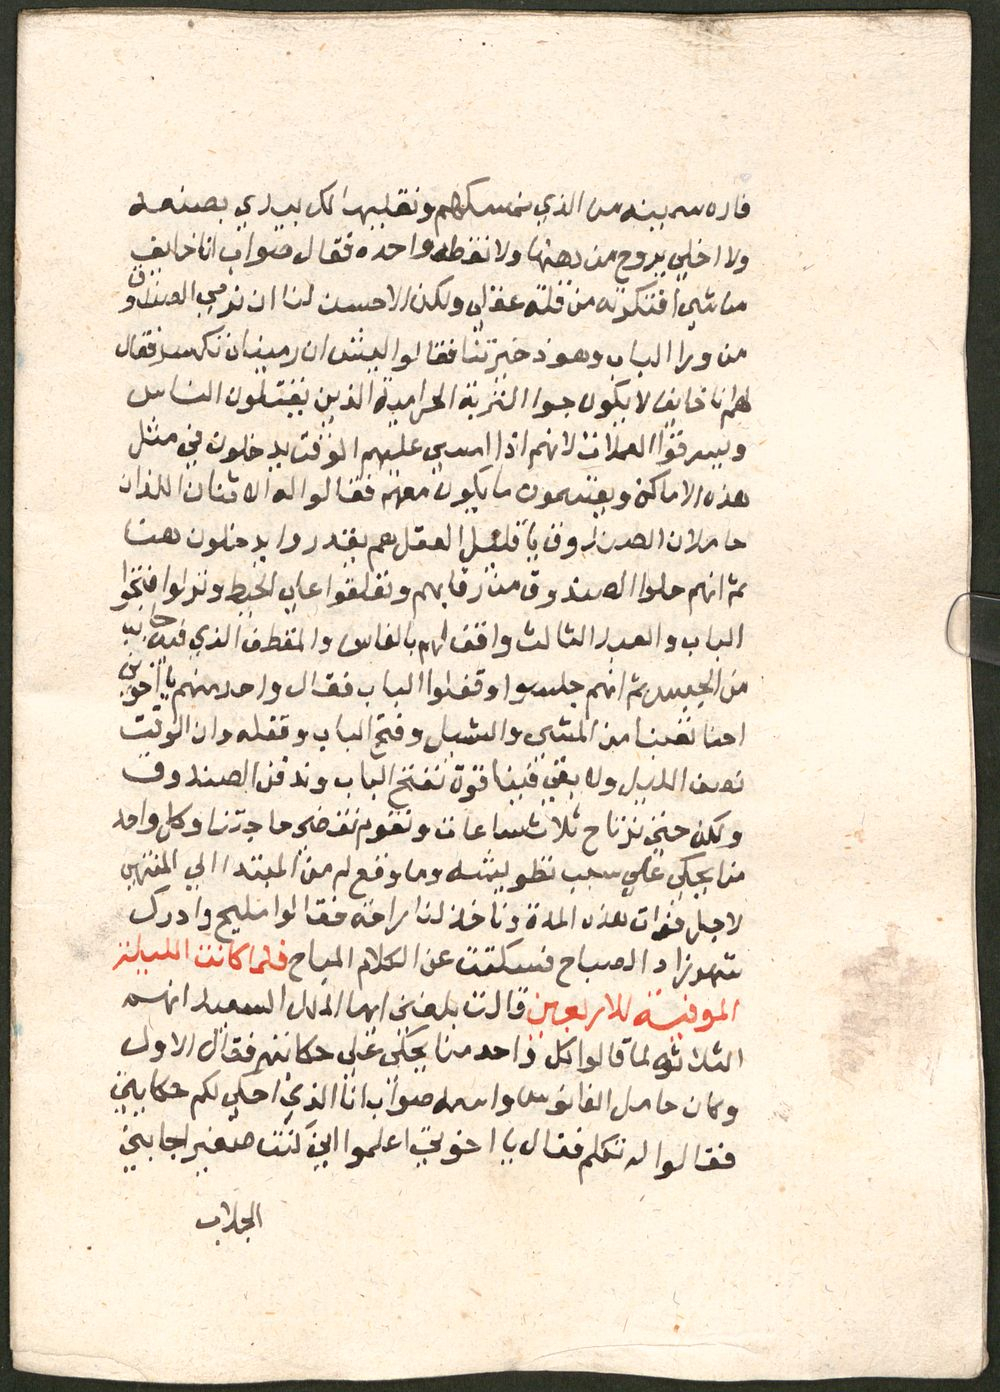 فاره سمينه من الذي نمسكهم ونقليها لك بيدي بصنعه
ولا اخلي يروح من دهنها ولا نقطه واحده فقال صواب انا خايف
من شي افتكرته من قلة عقلي ولكن الاحسن لنا ان نرمي الصندوق
من ورا الباب وهو ذخيرتنا فقالوا ليش ان رميناه نكسر فقال
لهم انا خايف لا يكون جوا التربة الحرامية الذين يقتلون الناس
ويسرقوا العملات لانهم اذا امسي عليهم الوقت يدخلون في مثل
هذه الاماكن ويقتسمون ما يكون معهم فقالوا له الاثنان اللذان
حاملان الصندوق يا قليل العقل هم يقدروا يدخلون هنا
ثم انهم حلوا الصندوق من رقابهم وتعلقوا على الحيط ونزلوا فتحوا
الباب والعبد الثالث واقف لهم بالفانوس والمقطف الذي فيه جانب
من الجبس ثم انهم جلسوا وقفلوا الباب فقال واحد منهم يا اخوتي
احنا تعبنا من المشي والشيل وفتح الباب وقفله وان الوقت
نصف الليل ولا بقي فينا قوة نفتح الباب وندفن الصندوق
ولكن حتى نرتاح ثلاث ساعات ونقوم نقضي حاجتنا وكل واحد
منا يحكي على سبب تطويشه وما وقع له من المبتدا الي المنتهى
لاجل فوات هذه المدة وناخذ لنا راحة فقالوا مليح وادرك
شهرزاد الصباح فسكتت عن الكلام المباح فلما كانت الليلة
الموفية للاربعين قالت بلغني ايها الملك السعيد انهم
الثلاثه لما قالوا كل واحد منا يحكي على حكايته فقال الاول
وكان حامل الفانوس واسمه صواب انا الذي احكي لكم حكايتي
فقالوا له تكلم فقال يا اخوتي اعلموا اني كنت صغير اجابني
الجلاب